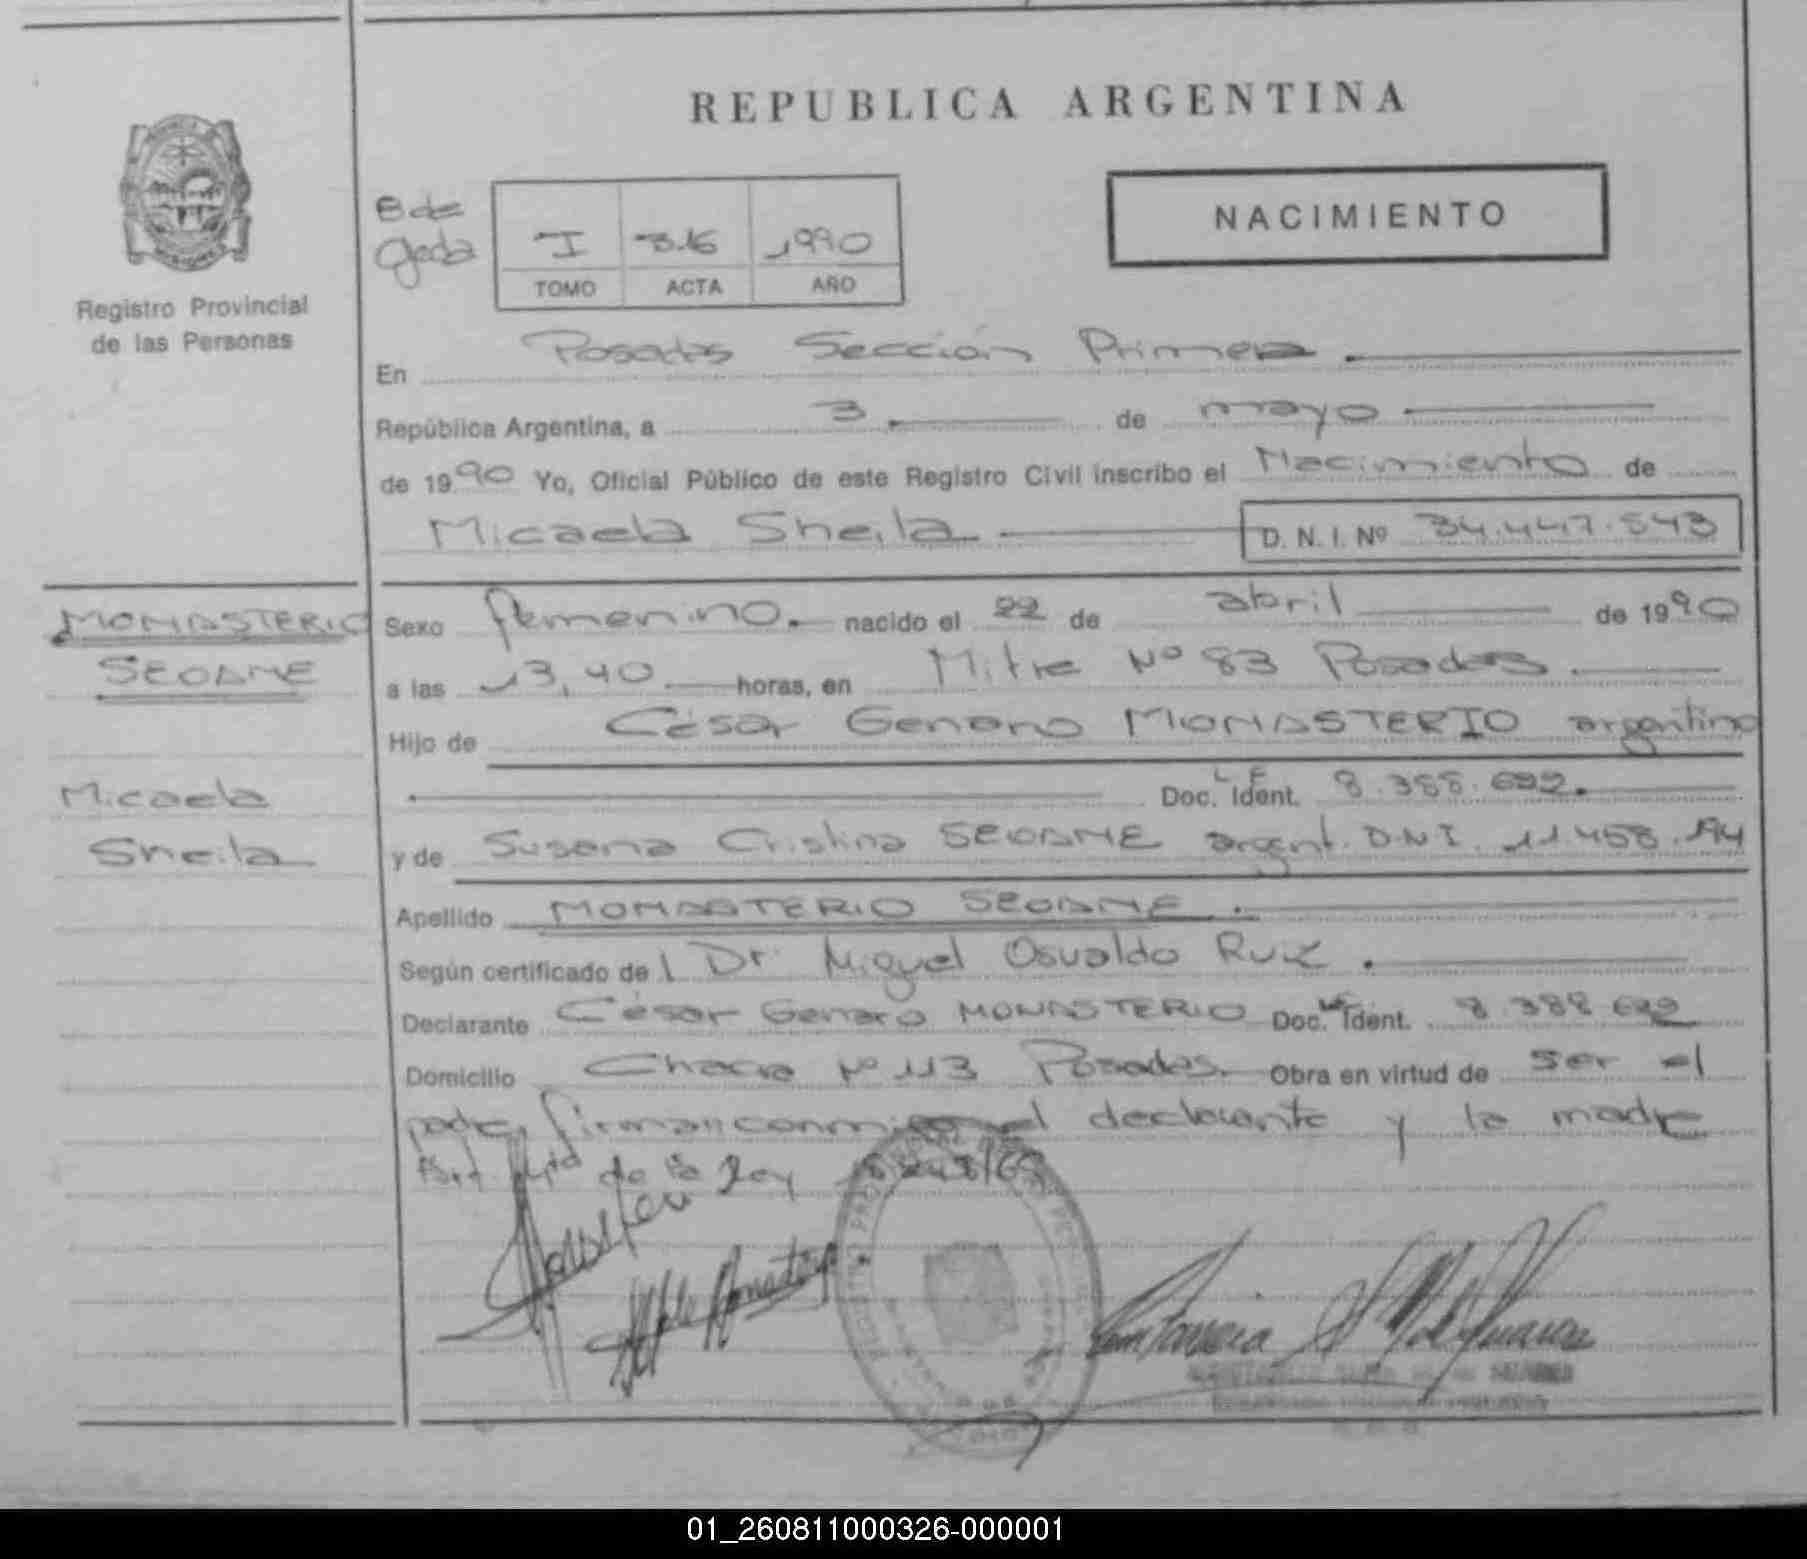 REPUBLICA ARGENTINA
NACIMIENTO
Registro Provincial
de las Personas
I 316 1990
TOMO ACTA AÑO
En Posadas Sección Primera.
República Argentina, a 3 de mayo
de 1990 Yo, Oficial Público de este Registro Civil inscribo el Nacimiento de
Micaela Sheila D. N. I. Nº 34.447.543
MONASTERIO
SEOANE
Micaela
Sheila
Sexo femenino. nacido el 22 de abril de 1990
a las 13,40 horas, en Mitre Nº 83 Posadas.
Hijo de César Genaro MONASTERIO argentino
Doc. Ident. L E 8.388.692.
y de Susana Cristina SEOANE argent. D.N.I. 11.458.
Apellido MONASTERIO SEOANE.
Según certificado del Dr. Miguel Osvaldo Ruiz.
Declarante César Genaro MONASTERIO Doc. Ident. LE 8.388.692
Domicilio Chacra Nº 113 Posadas. Obra en virtud de ser el
padre, firman conmigo el declarante y la madre
Art. 4to de la Ley
01_260811000326-000001